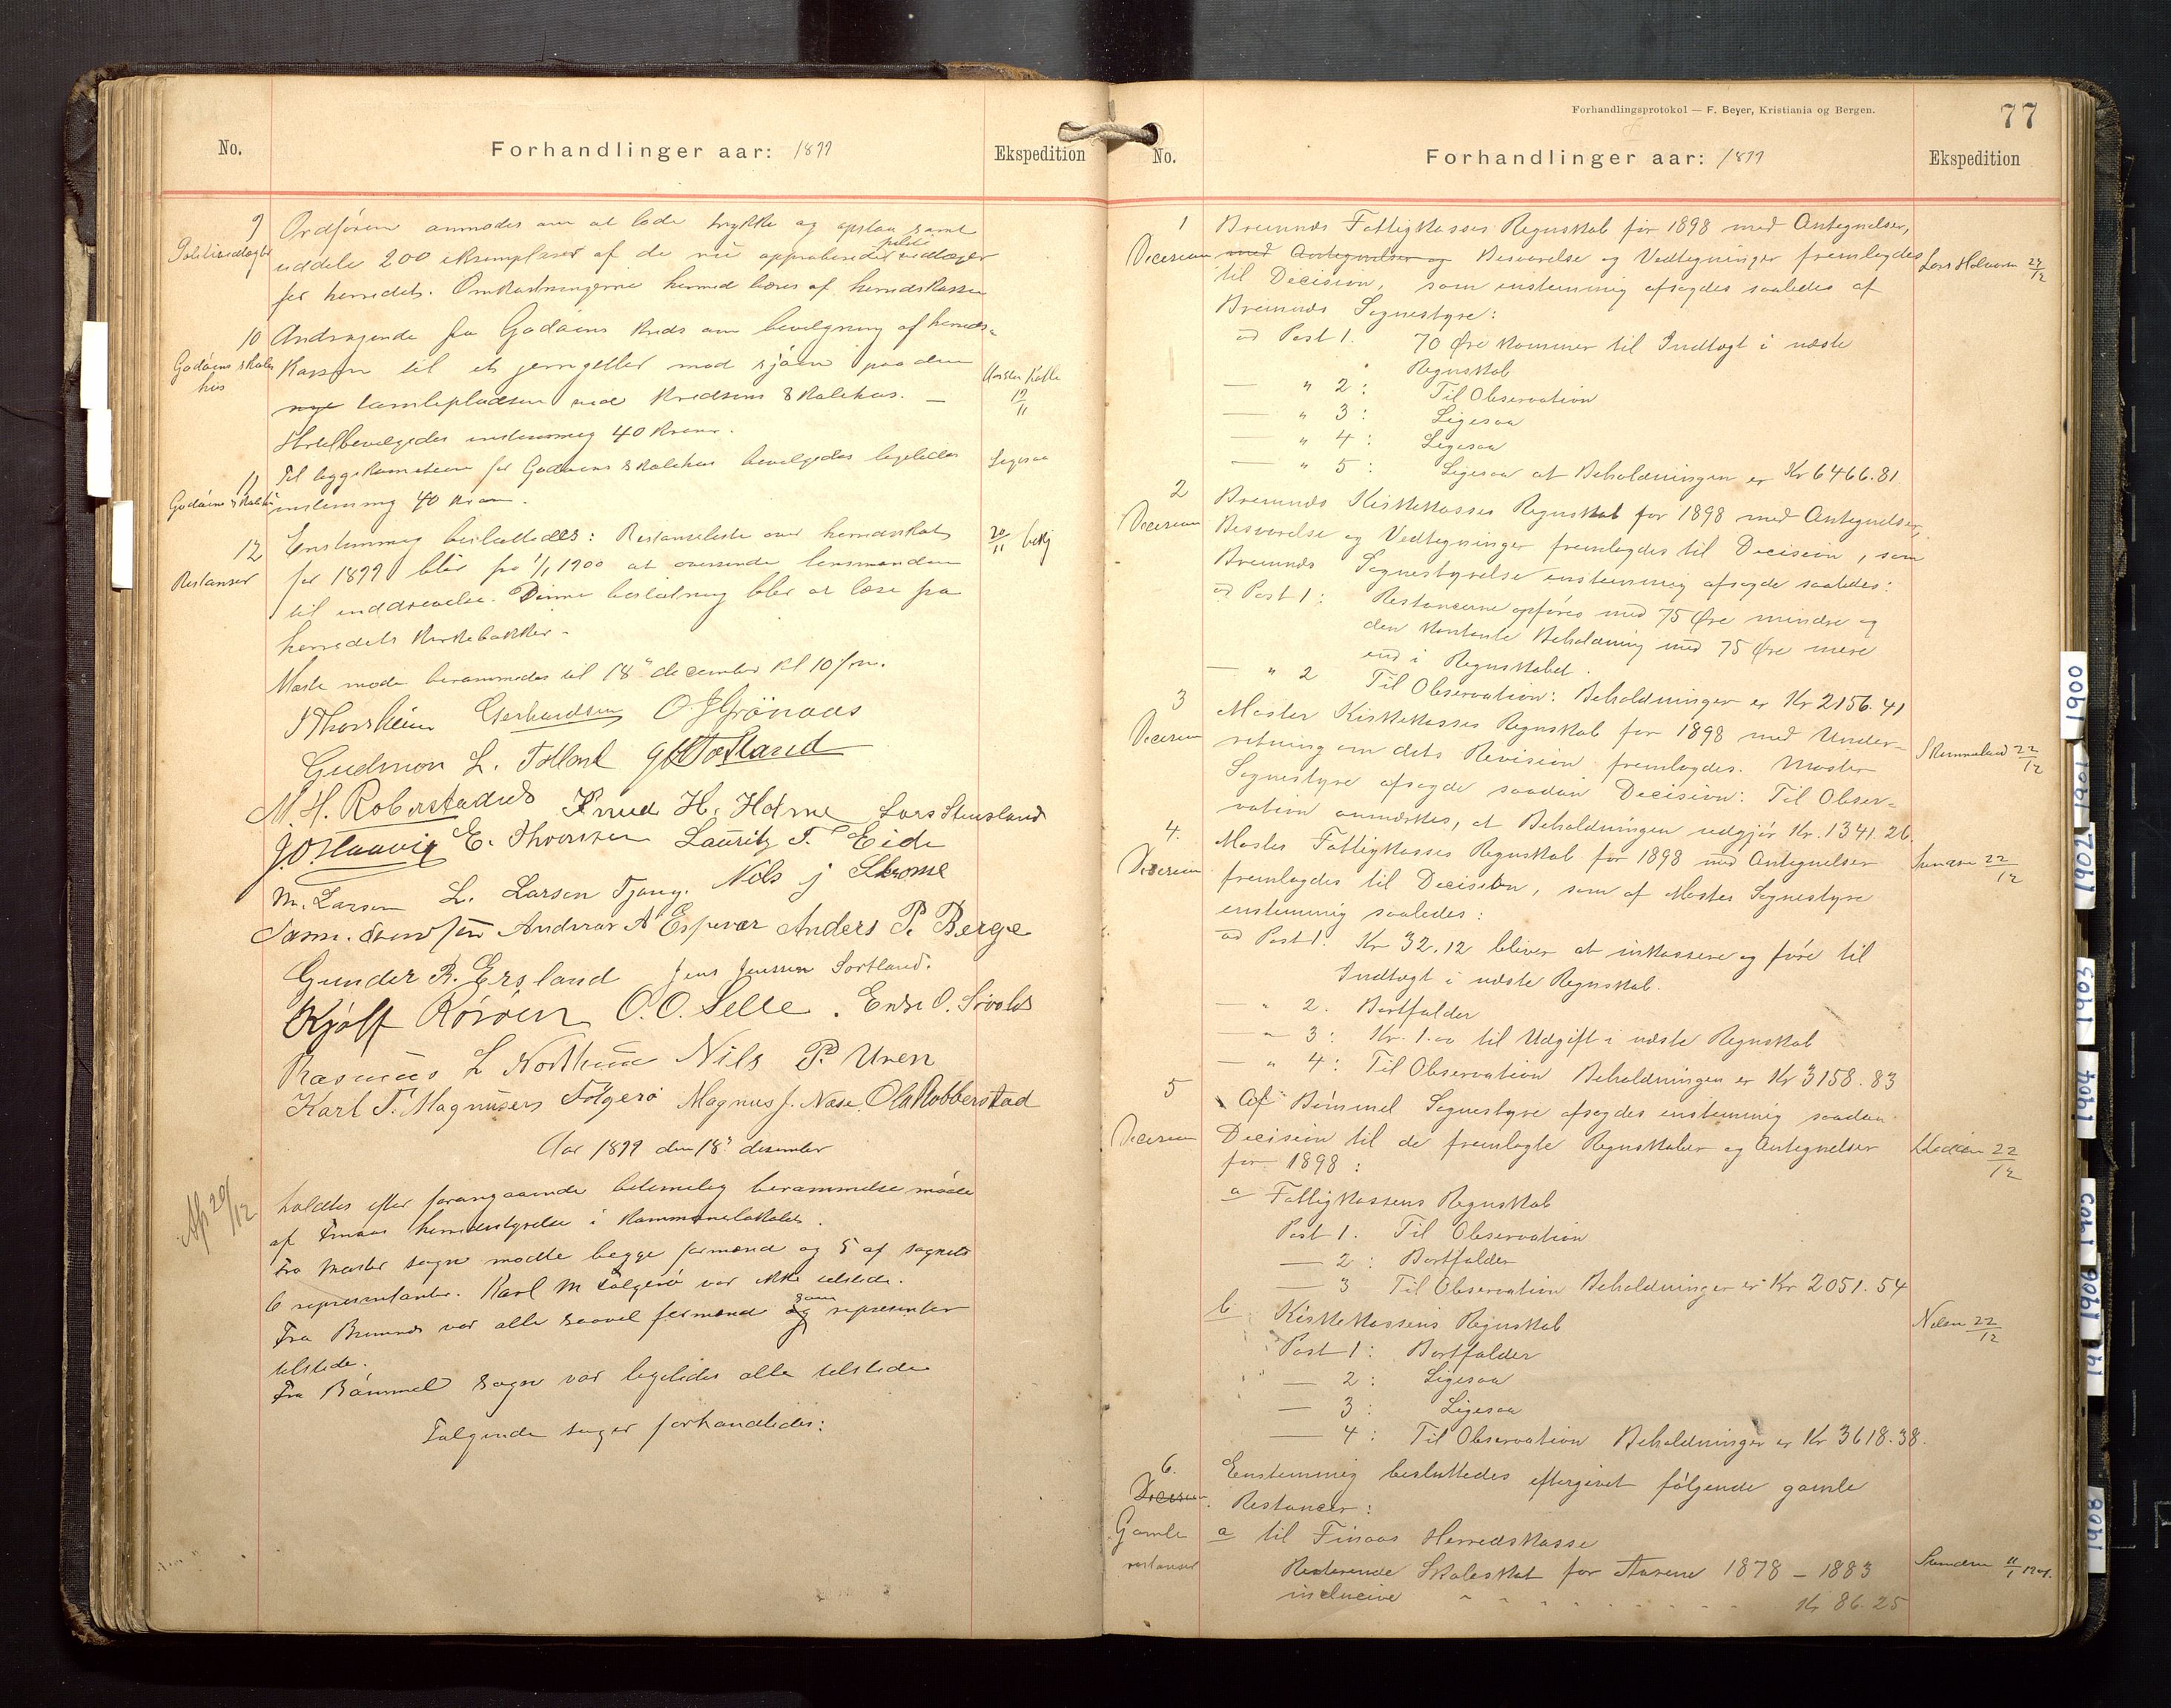 No.
Forhandlinger aar: 1899
Ekspedition
9 Ordføren anmodes om at lade trykke og opslaa samt
Politivedtægter uddele 200 eksemplarer af de nu approberede politi vedtægter
for herredet. Omkostningerne hermed bæres af herredskassen
10 Andragende fra Godøens kreds om bevilgning af herreds-
Godøens skolehus kassen til et jerngjetter mod sjøen paa den
nye tomteplads ved kredsens skolehus. —
12/11
Hertil bevilgedes enstemmig 40 kroner.
11 Til byggekomiteen for Godøens skolehus bevilgedes ligeledes
Ligesaa
Godøens skolehus enstemmig 40 kroner.
12 Enstemmig besluttedes: Restanseliste over herredsskat
20/11
Restanser for 1899 blir fra 1/1 1900 at oversende lensmanden
til inddrivelse. Denne beslutning blir at læse fra
herredets kirkebakker.
Næste møde berammedes til 18de december kl 10 f.m.
J Thorsheim Gerhardsen O J Grönaas
Gudmon L. Tolland
M. H. Robberstadvd Knud H. Holme Lars Stensland
J.O. Haavig E. Thorsen Lauritz T. Eide
M. Larsen L. Larsen Tjong. Nils J Skrome
Andreas A Espevær Anders P. Berge
Gunder B. Ersland Jens Jenssen Sortland.
Kjølf Rörøen O. O. Selle. Endre O. Siovold
Rasmus L Northun Nils P. Uren
Karl T. Magnusen Folgerø Magnus J. Næse. Ola Robberstad
Aar 1899 den 18de desember
Afs 20/12
holdtes efter forangaaende betimelig berammelse møde
af Finaas herredsstyrelse i kommunelokalet.
Fra Moster sogn mødte begge formænd og 5 af sognets
6 representanter. Karl M Folgerø var ikke tilstede.
Fra Bremnes var alle saavel formænd og som representanter
tilstede.
Fra Bømmel sogn var ligeledes alle tilstede
Følgende sager forhandledes:
Forhandlingsprotokol — F. Beyer, Kristiania og Bergen.
77
No.
Forhandlinger aar: 1899
Ekspedition
1 Bremnes Fattigkasses Regnskab for 1898 med Antegnelser,
Decision med Antegnelser og Besvarelse og Vedtegninger fremlagdes
til Decision, som enstemmig afsagdes saaledes af
Bremnes Sognestyre:
ad Post 1. 70 Øre kommer til Indtægt i næste
Regnskab
— " 2: Til Observation
— " 3: Ligesaa
— " 4: Ligesaa
— " 5: Ligesaa at Beholdningen er Kr 6466.81
2 Bremnes Kirkekasses Regnskab for 1898 med Antegnelser,
Decision Besvarelse og Vedtegninger fremlagdes til Decision, som
Bremnes Sognestyrelse enstemmig afsagde saaledes:
ad Post 1: Restancerne opføres med 75 Øre mindre og
den kontante Beholdning med 75 Øre mere
end i Regnskabet.
— " 2 Til Observation: Beholdningen er Kr 2156.41
3 Moster Kirkekasses Regnskab for 1898 med Under-
Decision retning om dets Revision fremlagdes. Moster
22/12
Sognestyre afsagde saadan Decision: Til Obser-
vation anmærkes, at Beholdningen udgjør Kr. 1341.26.
4. Moster Fattigkasses Regnskab for 1898 med Antegnelser
22/12
Decision fremlagdes til Decision, som af Moster Sognestyre
enstemmig saaledes:
ad Post 1. Kr 32.12 bliver at inkassere og føre til
Indtægt i næste Regnskab.
— " 2. Bortfalder
— " 3: Kr. 1.00 til Udgift i næste Regnskab
— " 4: Til Observation Beholdningen er Kr 3158.83
5 Af Bømmel Sognestyre afsagdes enstemmig saadan
Decision Decision til de fremlagte Regnskaber og Antegnelser
22/12
for 1898:
a Fattigkassens Regnskab
Post 1. Til Observation
— 2: Bortfalder
— 3 Til Observation Beholdningen er Kr 2051.54
b Kirkekassens Regnskab
Nelsen 22/12
Post 1: Bortfalder
— 2: Ligesaa
— 3: Ligesaa
— 4: Til Observation Beholdningen er Kr 3618.38.
6. Enstemmig besluttedes eftergivet følgende gamle
Decision Restancer:
Gamle a til Finaas Herredskasse
restanser Resterende Skoleskat for Aarene 1878 – 1883
inclusive Kr 86.25
1900
1901
1902
1903
1904
1905
1906
1908